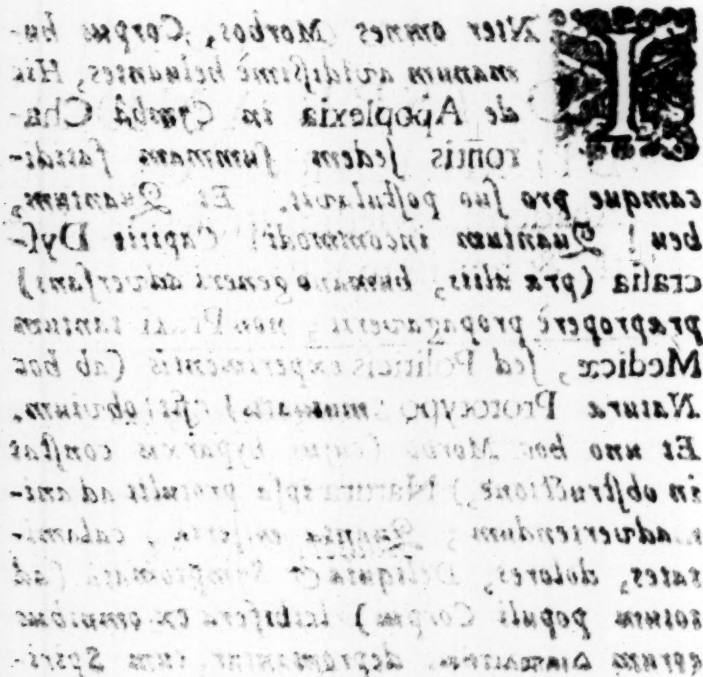 INter omnes Morbos, Corpus hu-
manum avidiſſimè heluantes,
de Apoplexia in Cymbâ Cha-
rontis ſedem ſummam faſtidi-
camque pro ſuo poſtulavit. Et Quantum,
heu! Quantum incommodi! Capitis Dyſ-
craſia (præ aliis, humano generi adverſans)
præproperè propagaverit, non Praxi tantum
Medicæ, ſed Politicis experimentis (ab hoc
Naturæ Prototypo mutuatis) eſt obvium.
Et uno hoc Morbo (cujus hyparxis conſtat
in obſtructione,) Natura ipſa protulit ad ani-
madvertendum, Quanta miſeria, calami-
tates, dolores, Deliquia & Symptomata (ad
totum populi Corpus) lethifera ex omnibus
eorum depromantur, tum Spiri-